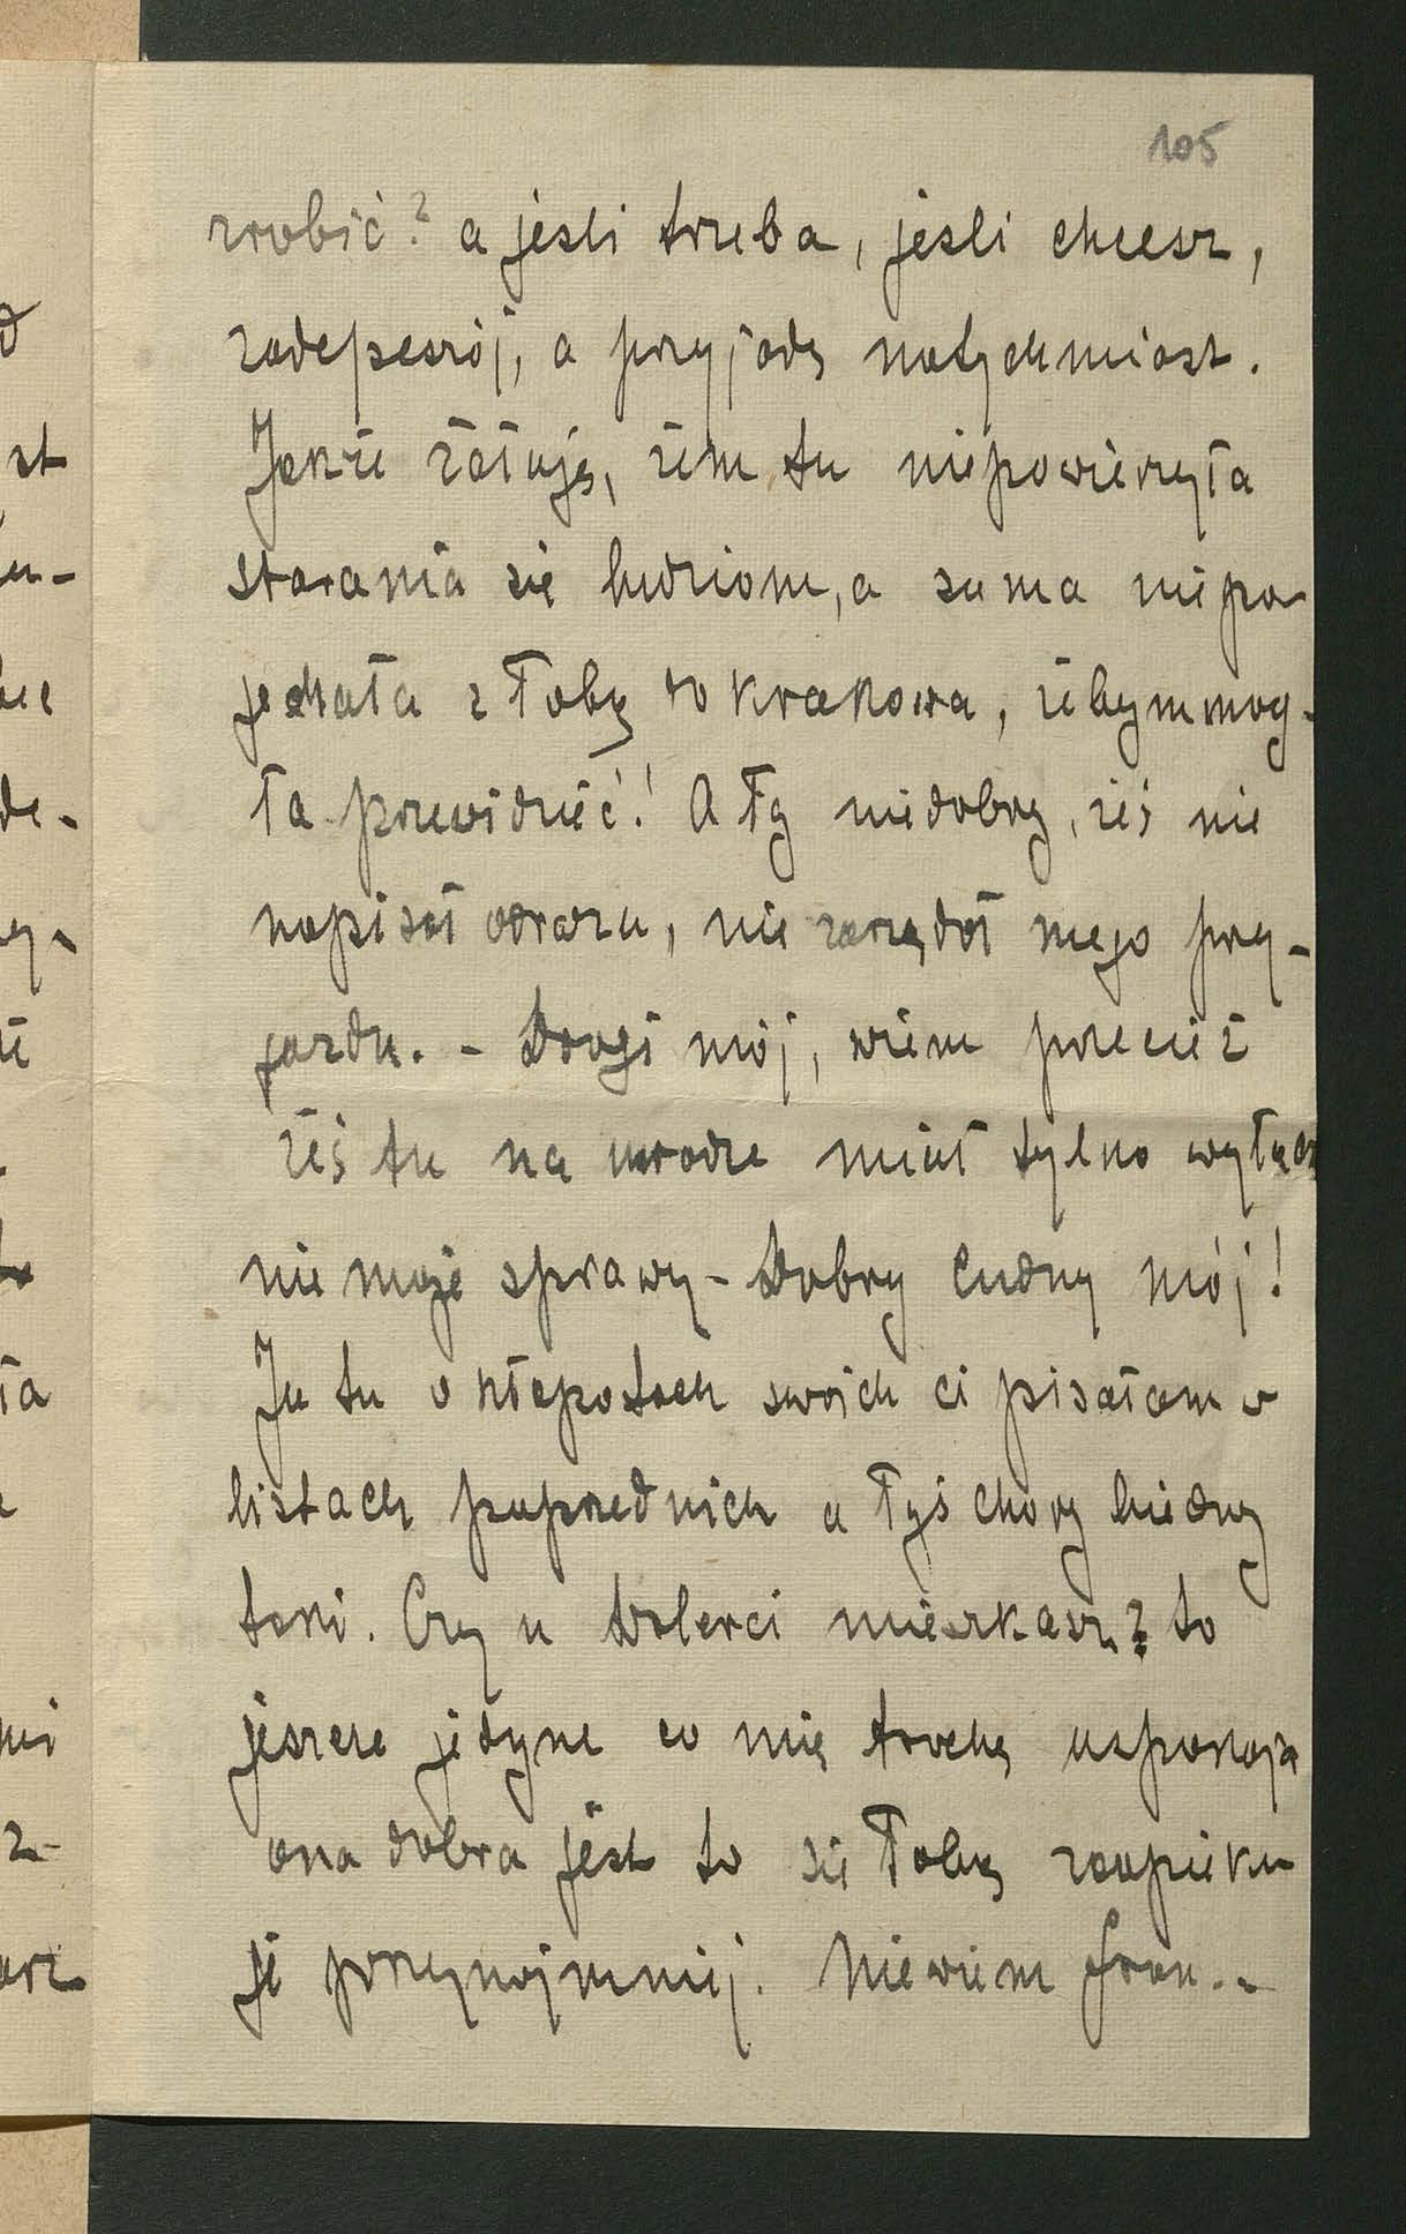 105
zrobić? a jeśli trzeba, jeśli chcesz,
zadepeszój, a przyjadę natychmiast.
Jakże żałuję, żem tu niepowierzyła
starania się ludziom, a sama niepo
jechała z Tobą do Krakowa, żebym mog-
ła przewidzieć! A Ty niedobry, żeś nie
napisał odrazu, nie zarządał mego przy-
jazdu. - Drogi mój, wiem przecież
żeś tu na uwadze miał tylko wyłącz
nie moje sprawy - Dobry cudny mój!
Ja tu o kłopotach swoich ci pisałam w
listach poprzednich a Tyś chory biedny
taki. Czy u mieszkasz? to
jeszcze jedyne co mię trochę uspokaja
ona dobra jest to się Tobą zaopieku
je przynajmniej. Niewiem